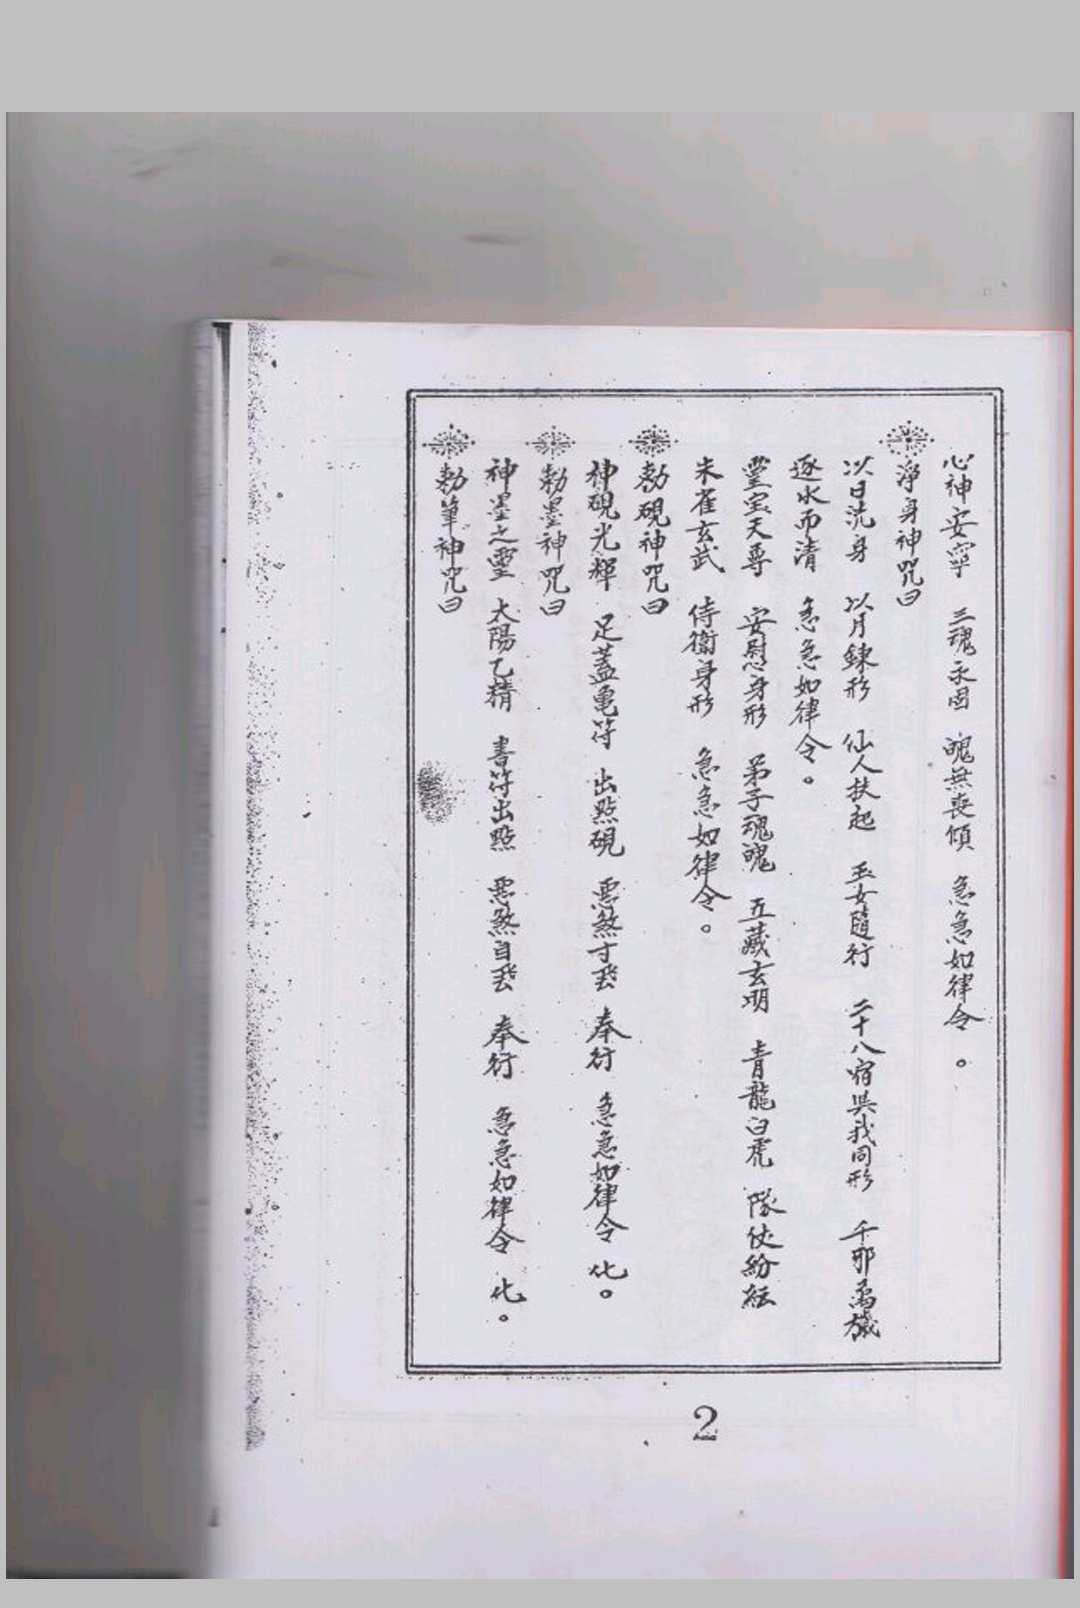 心神安寧 三魂永固 魄無喪傾 急急如律令 。
淨身神咒曰
以日洗身 以月鍊形 仙人扶起 玉女隨行 二十八宿與我同形 千邪萬穢
逐水而清 急急如律令 。
靈宝天尊 安慰身形 弟子魂魄 五藏玄明 青龍白虎 隊仗紛紜
朱雀玄武 侍衛身形 急急如律令 。
勅硯神咒曰
神硯光輝 足蓋亀符 出點硯 惡煞寸 奉行 急急如律令 化。
勅墨神咒曰
神墨之靈 太陽乙精 書符出點 惡煞自 奉行 急急如律令 化。
勅筆神咒曰
2